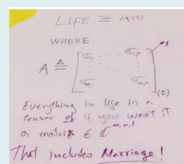 LIFE ≡ A(t)
WHERE
A ≜ [σ11 ... σ1n
σm1 ... σmn] (t)
Everything in life is a
tensor or if you want it
a matrix ∈ ℂ^m,n,t
That includes Marriage!